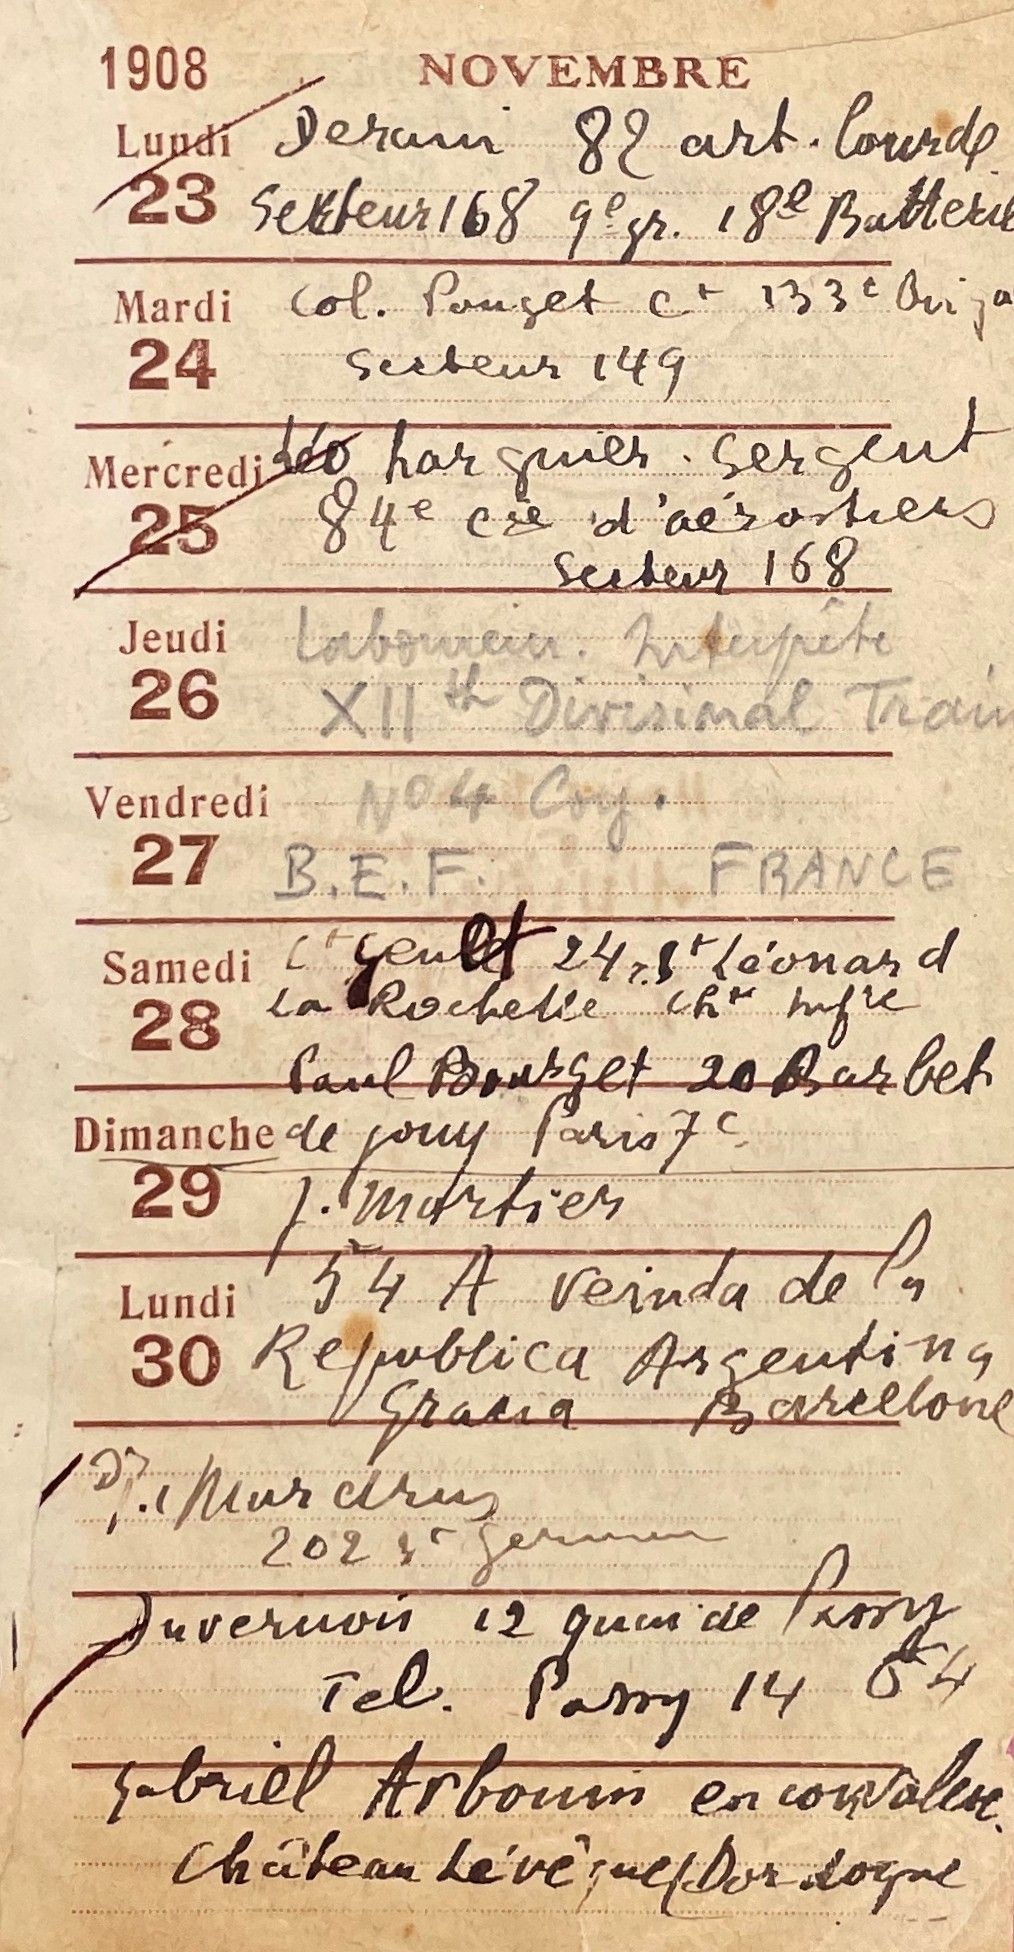 1908 NOVEMBRE
Lundi 23
Derain 82 art. lourde
Sekteur 168 9e gr. 18e Batterie
Mardi 24
Col. Pouget Ct 133e Briga
Secteur 149
Mercredi 25
Léo Larguier. Sergent
84e cie d'aérostiers
Secteur 168
Jeudi 26
Interprète
XIIth Divisional Train
Vendredi 27
No 4 Coy.
B.E.F. FRANCE
Samedi 28
Ct 24, St Léonard
La Rochelle Chte Infre
Paul Bourget 20 Barbet
Dimanche 29
de jouy Paris 7e
J. Mortier
Lundi 30
54 A veinda de la
Republica Argentina
Gracia Barcellone
Dr J. Mardrus
202 St Germain
Duvernois 12 quai de Passy
Tel. Passy 14 54
Gabriel Arbouin en convalesc.
Château Lévêque (Dordogne